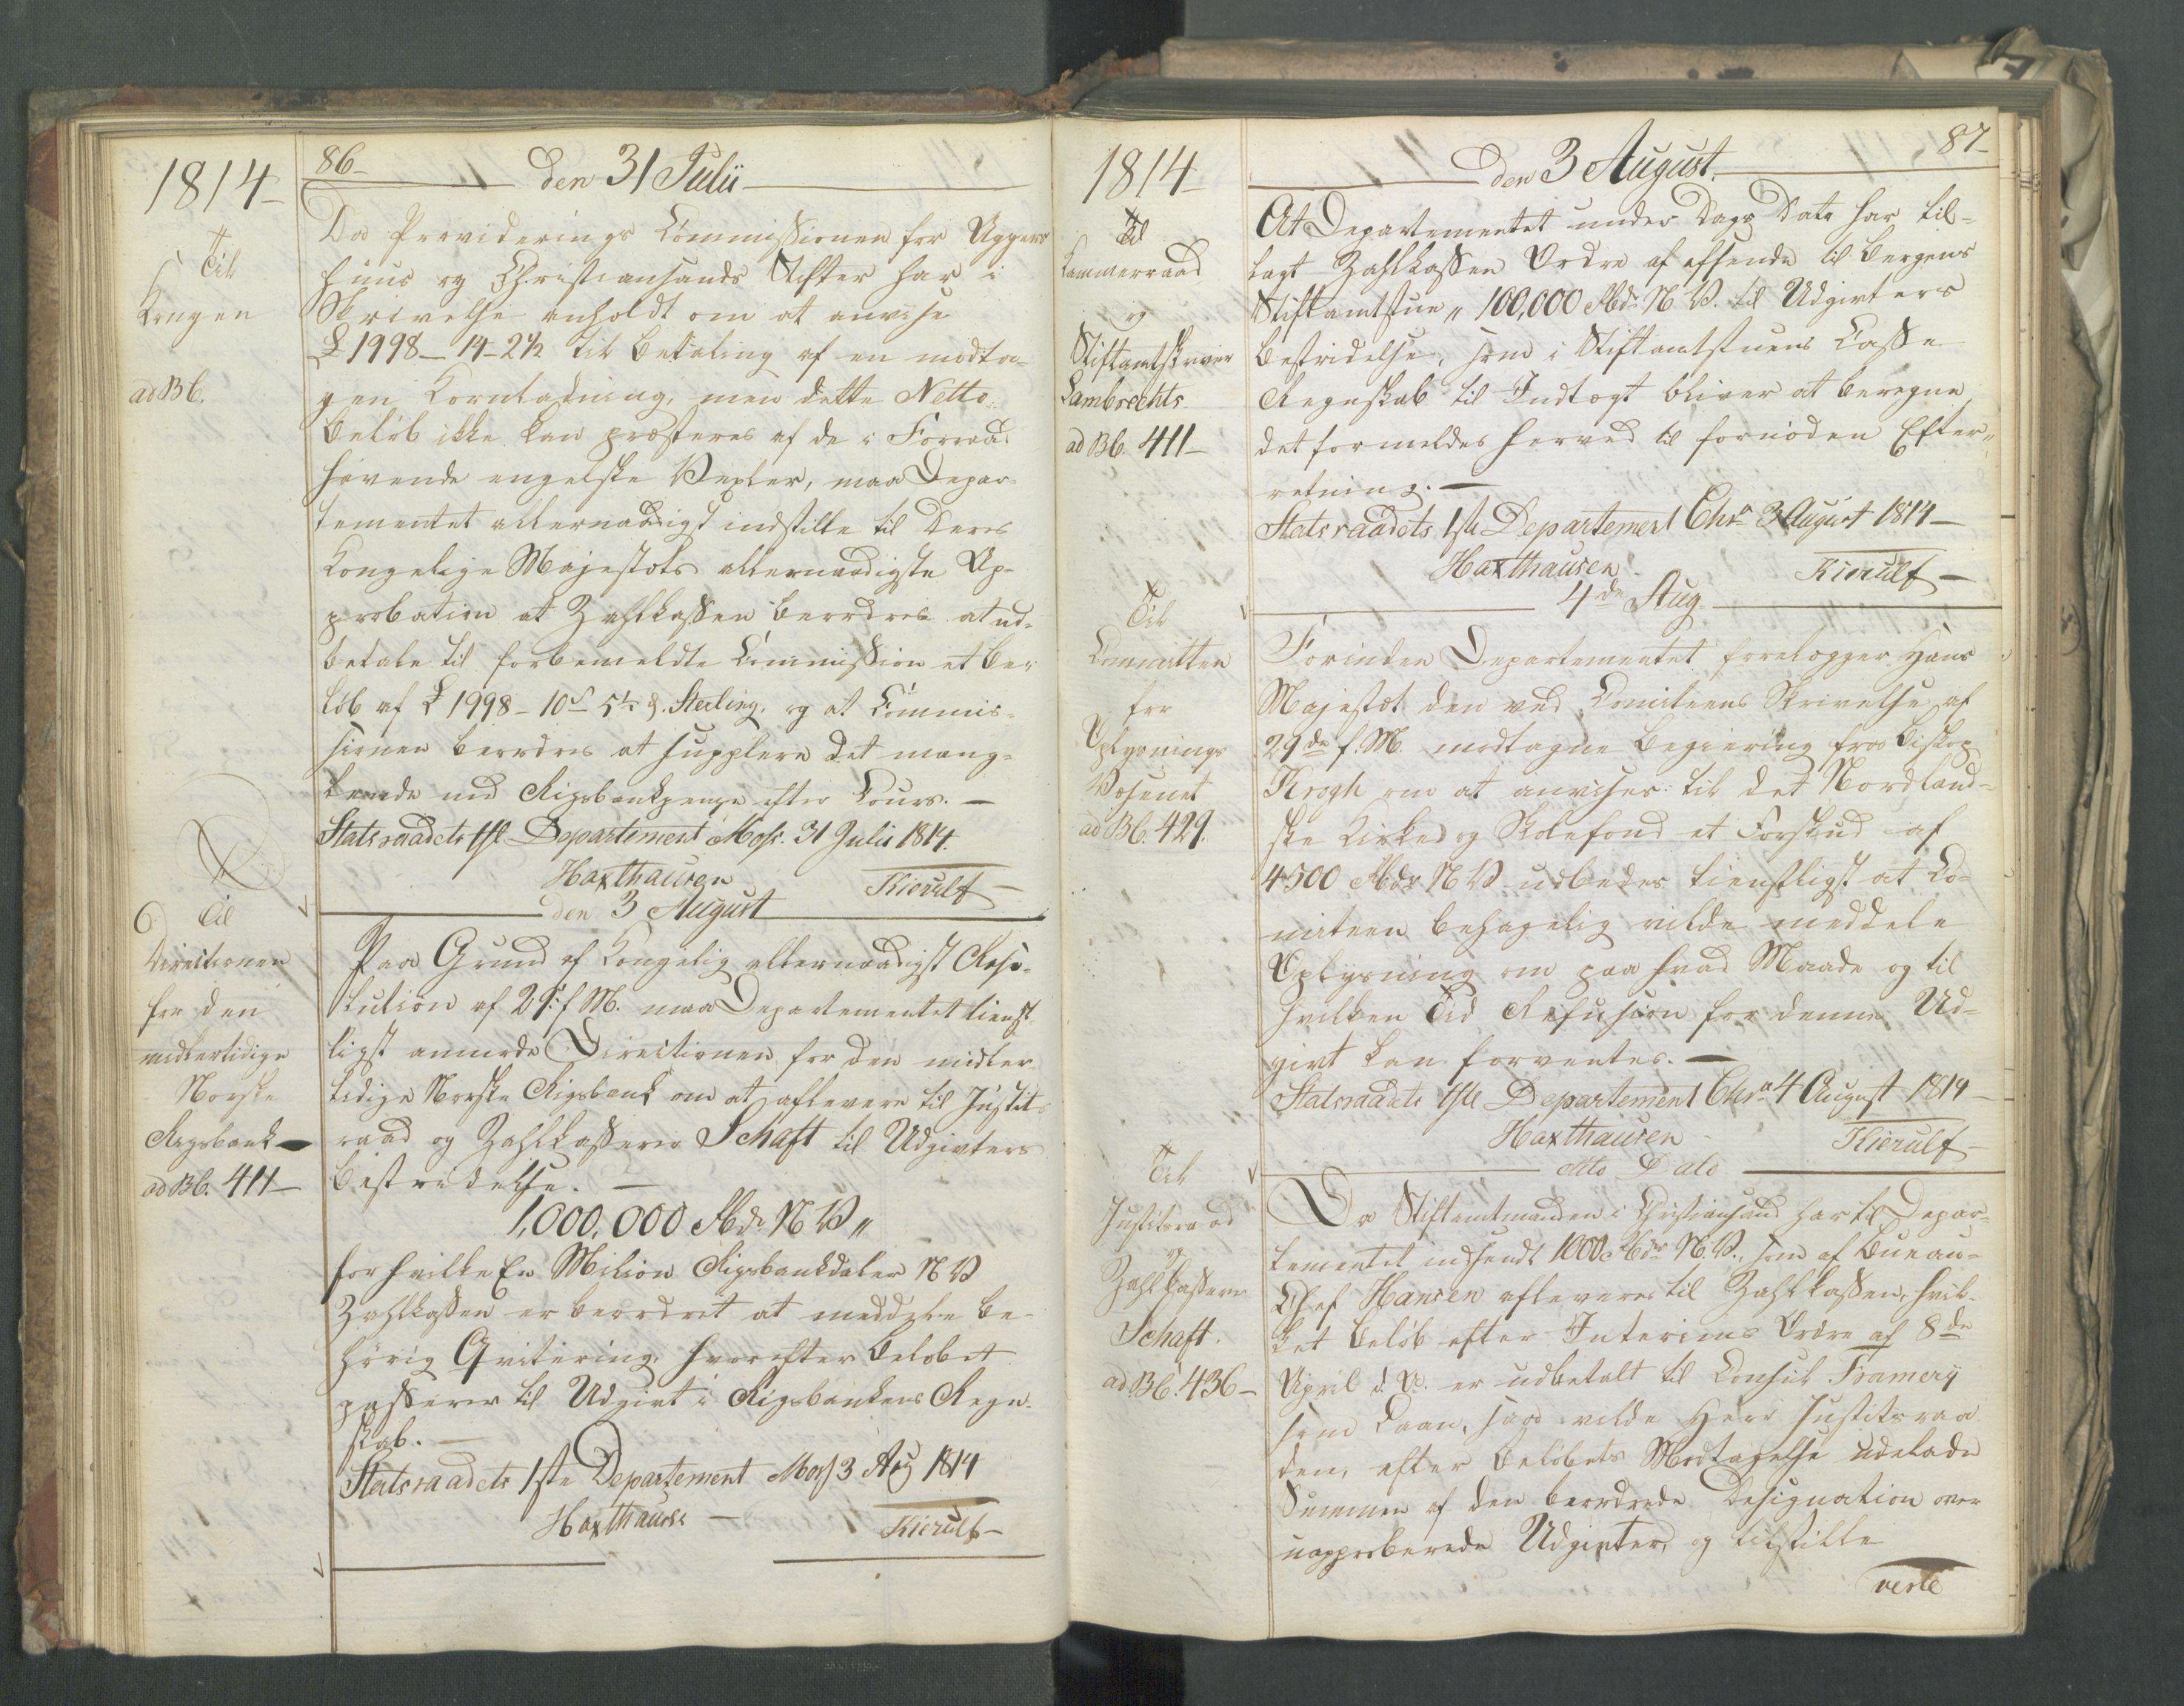 1814
86
den 31 Julii
Til
Kongen
ad B 6.
Da Provideringscommissionen for Agger¬
huus og Christiansands Stifter har i
Skrivelse anholdt om at anvise
£ 1998 - 14 - 2 1/2 til Betaling af en modta¬
gen Kornladning, men dette Netto
Beløb ikke kan præsteres af de i Forraad
havende engelske Vexler, maa Depar¬
tementet allernaadigst indstille til Deres
Kongelige Majestæts allernaadigste Ap¬
probation at Zahlkassen beordres at ud¬
betale til forbemeldte Commission et Be¬
løb af £ 1998 - 10 s 5 1/2 d. Sterling, og at Commis¬
sionen beordres at supplere det mang¬
lende med Rigsbankpenge efter Cours. —
Statsraadets 1ste Departement Moss. 31 Julii 1814.
Haxthausen Kierulf
den 3 August
Til
Directionen
for den
midlertidige
Norske
Rigsbank
ad B 6. 411
Paa Grund af Kongelig allernaadigst Reso¬
lution af 29 f. M. maa Departementet tienst¬
ligst anmode Directionen for den midler¬
tidige Norske Rigsbank om at aflevere til Justits¬
raad og Zahlkasserer Schaft til Udgivters
Bestridelse. —
1,000,000 Rbdr N V „
for hvilke En Milion Rigsbankdaler N V
Zahlkassen er beordret at meddele be¬
hørig Qvitering, hvorefter Beløbet
passerer til Udgivt i Rigsbankens Regn¬
skab. —
Statsraadets 1ste Departement Moss 3 Aug 1814
Haxthausen — Kierulf
1814
87
den 3 August.
Til
Kammerraad
og
Stiftamtskriver
Lambrechts
ad B 6. 411
At Departementet under Dags Dato har til¬
lagt Zahlkassen Ordre at afsende til Bergens
Stiftamtstue „ 100,000 Rbdr N V. til Udgivters
Bestridelse, som i Stiftamtstuens Casse
Regnskab til Indtægt bliver at beregne,
det formeldes herved til fornøden Efter¬
retning. —
Statsraadets 1ste Departement Chra 3 August 1814
Haxthausen Kierulf
4de Aug.
Til
Committeen
for
Oplysnings
Væsenet
ad B 6. 429.
Forinden Departementet forelægger Hans
Majestæt den ved Comiteens Skrivelse af
29de f. M. modtagne Begiering fra Biskop
Krogh om at anvises til det Nordland¬
ske Kirke og Skolefond et Forskud af
4500 Rbdr N V udbedes tienstligst at Co¬
miteen behagelig vilde meddele
Oplysning om paa hvad Maade og til
hvilken Tid Refusion for denne Ud¬
givt kan forventes. —
Statsraadets 1ste Departement Chra 4 August 1814
Haxthausen Kierulf
dito Dato
Til
Justitsraad
og
Zahlkasserer
Schaft.
ad B 6. 436
Da Stiftamtmanden i Christiansand har til Depar¬
tementet indsendt 1000 Rbdr N. V., som af Bureau¬
Chef Hansen afleveres til Zahlkassen, hvil¬
ket Beløb efter Interims Ordre af 8de
April d. A. er udbetalt til Consul Framery
som Laan, saa vilde Herr Justitsraa
den, efter Beløbets Modtagelse udelade
Summen af den beordrede Designation over
uapproberede Udgivter, og tilstille
verte